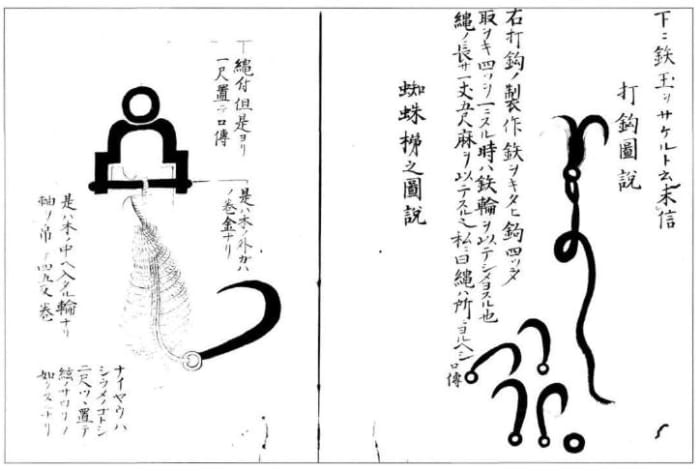 下ニ鉄玉ヲサケルト云未信
打鈎圖説
右打鈎ノ製作鉄ヲキタヒ鈎四ツヲ
取ヲキ四ツヲ一ニスル時ハ鉄輪ヲ以テシメヨスル也
縄ノ長サ一丈五尺麻ヲ以テスル之私ニ曰縄ハ所ニヨルヘシ口傳
蜘蛛梯之圖説
縄付但是ヨリ
一尺置テ口傳
是ハ木ノ外カハ
ノ巻金ナリ
是ハ木ノ中ヘ入タル輪ナリ
軸ノ 四五反巻
ナイヤウハ
シウメノゴトシ
二尺ツヽ置テ
ノサワリノ
如 ナリ